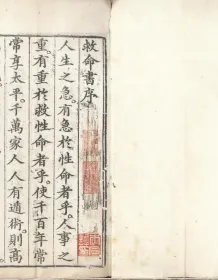 救命書序
人生之急有急於性命者乎人事之
重有重於救性命者乎使千百年常
常享太平千萬家人人有遁術則高